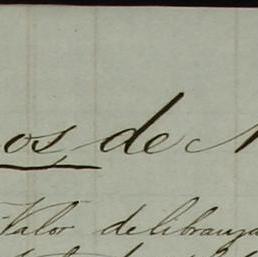 os, de
Valor de libranza